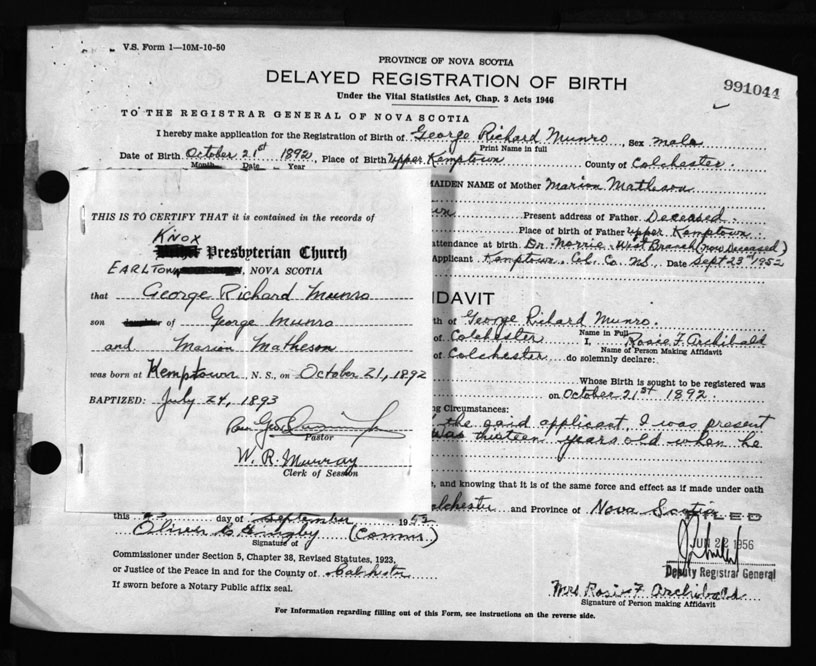 V.S. Form 1—10M-10-50
PROVINCE OF NOVA SCOTIA
DELAYED REGISTRATION OF BIRTH
991044
Under the Vital Statistics Act, Chap. 3 Acts 1946
TO THE REGISTRAR GENERAL OF NOVA SCOTIA
I hereby make application for the Registration of Birth of George Richard Munro, Sex male
Print Name in full
Date of Birth October 21st 1892, Place of Birth Upper Kemptown County of Colchester
Month Date Year
MAIDEN NAME of Mother Marion Matheson
Present address of Father Deceased.
Place of birth of Father Upper Kemptown.
attendance at birth. Dr. Norrie West Branch (now Deceased)
Applicant Kemptown, Col. Co. N.S., Date Sept 23rd 1952
THIS IS TO CERTIFY THAT it is contained in the records of
KNOX
Presbyterian Church
EARLTOWN, NOVA SCOTIA
that George Richard Munro
son daughter of George Munro
and Marion Matheson
was born at Kemptown, N. S., on October 21, 1892
BAPTIZED: July 24, 1893
Rev. Geo.
Pastor
W. R. Murray
Clerk of Session
FIDAVIT
th of George Richard Munro.
Name in Full
of Colchester I, Rosie F. Archibald
Name of Person Making Affidavit
of Colchester do solemnly declare:
Whose Birth is sought to be registered was
on October 21st 1892.
ng Circumstances:
the said applicant, I was present
was thirteen years old when he
e, and knowing that it is of the same force and effect as if made under oath
olchester and Province of Nova Scotia
FILED
this 23 day of September 1952
Oliver (Comm.)
Signature of
JUN 22 1956
Deputy Registrar General
Commissioner under Section 5, Chapter 38, Revised Statutes, 1923,
or Justice of the Peace in and for the County of Colchester
If sworn before a Notary Public affix seal.
Mrs Rosie F Archibald
Signature of Person making Affidavit
For Information regarding filling out of this Form, see instructions on the reverse side.